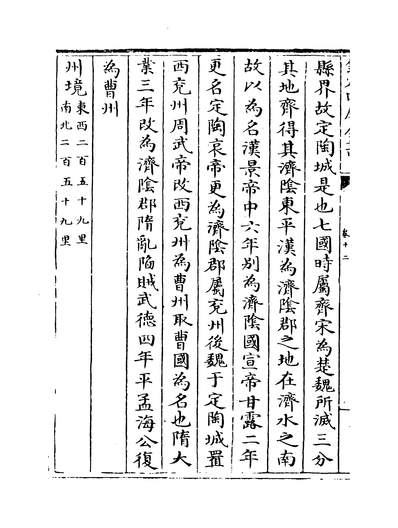 縣界故定陶城是也七國時屬齊宋為楚魏所滅三分
其地齊得其濟陰東平漢為濟陰郡之地在濟水之南
故以為名漢景帝中六年别為濟陰國宣帝甘露二年
更名定陶哀帝更為濟陰郡屬兖州後魏于定陶城置
西兖州周武帝改西兖州為曹州取曹國為名也隋大
業三年改為濟陰郡隋亂陷賊武德四年平孟海公復
為曹州
州境東西二百五十九里
南北二百五十九里
卷十二